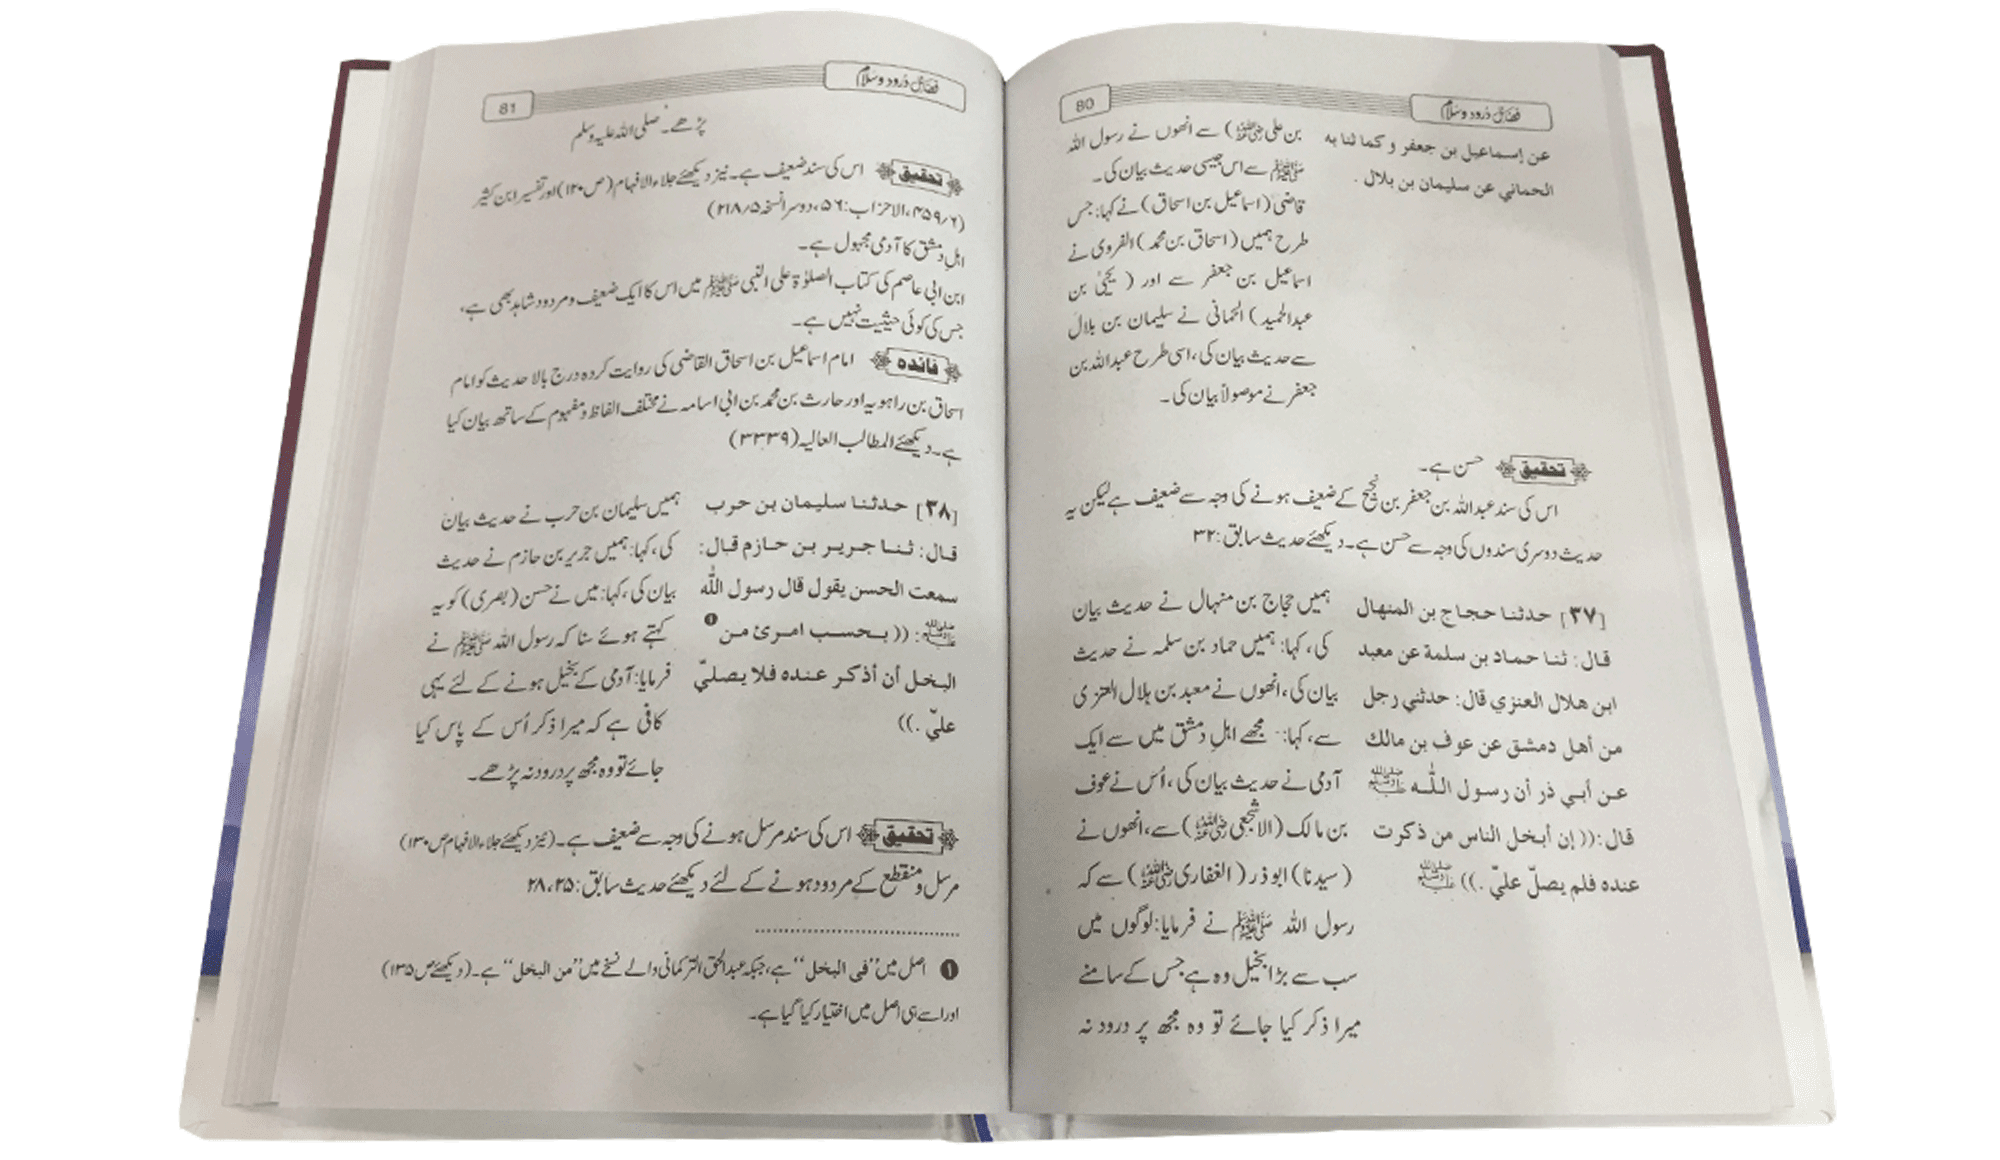 فضائل درود و سلام
80
عن إسماعيل بن جعفر و كما ثنا به
الحماني عن سليمان بن بلال .
بن علی رضی اللہ عنہ) سے انھوں نے رسول اللہ
ﷺ سے اس جیسی حدیث بیان کی۔
قاضی (اسماعیل بن اسحاق) نے کہا: جس
طرح ہمیں (اسحاق بن محمد) الفروی نے
اسماعیل بن جعفر سے اور (یحییٰ بن
عبدالحمید) الحمانی نے سلیمان بن بلال
سے حدیث بیان کی، اسی طرح عبداللہ بن
جعفر نے موصولاً بیان کی۔
تحقیق حسن ہے۔
اس کی سند عبداللہ بن جعفر بن نجیح کے ضعیف ہونے کی وجہ سے ضعیف ہے لیکن یہ
حدیث دوسری سندوں کی وجہ سے حسن ہے۔ دیکھئے حدیث سابق: ۳۲
[۳۷] حدثنا حجاج بن المنهال
قال: ثنا حماد بن سلمة عن معبد
ابن هلال العنزي قال: حدثني رجل
من أهل دمشق عن عوف بن مالك
عن أبي ذر أن رسول اللّٰه ﷺ
قال: (( إن أبخل الناس من ذكرت
عنده فلم يصلّ عليّ .)) ﷺ
ہمیں حجاج بن منہال نے حدیث بیان
کی، کہا: ہمیں حماد بن سلمہ نے حدیث
بیان کی، انھوں نے معبد بن ہلال العنزی
سے، کہا: مجھے اہلِ دمشق میں سے ایک
آدمی نے حدیث بیان کی، اُس نے عوف
بن مالک (الاشجعی رضی اللہ عنہ) سے، انھوں نے
(سیدنا) ابو ذر (الغفاری رضی اللہ عنہ) سے کہ
رسول اللہ ﷺ نے فرمایا: لوگوں میں
سب سے بڑا بخیل وہ ہے جس کے سامنے
میرا ذکر کیا جائے تو وہ مجھ پر درود نہ
فضائل درود و سلام
81
پڑھے۔ صلی اللہ علیہ وسلم
تحقیق اس کی سند ضعیف ہے۔ نیز دیکھئے جلاء الافہام (ص۱۲۰) اور تفسیر ابن کثیر
(۴۵۹/۶، الاحزاب: ۵۶، دوسرا نسخہ ۲۱۸/۵)
اہلِ دمشق کا آدمی مجہول ہے۔
ابن ابی عاصم کی کتاب الصلوٰۃ علی النبی ﷺ میں اس کا ایک ضعیف و مردود شاہد بھی ہے،
جس کی کوئی حیثیت نہیں ہے۔
فائدہ امام اسماعیل بن اسحاق القاضی کی روایت کردہ درج بالا حدیث کو امام
اسحاق بن راہویہ اور حارث بن محمد بن ابی اسامہ نے مختلف الفاظ و مفہوم کے ساتھ بیان کیا
ہے۔ دیکھئے المطالب العالیہ (۳۳۳۹)
[۳۸] حدثنا سليمان بن حرب
قال: ثنا جرير بن حازم قال:
سمعت الحسن يقول قال رسول اللّٰه
ﷺ: (( بحسب امرئ من❶
البخل أن أذكر عنده فلا يصليّ
عليّ .))
ہمیں سلیمان بن حرب نے حدیث بیان
کی، کہا: ہمیں جریر بن حازم نے حدیث
بیان کی، کہا: میں نے حسن (بصری) کو یہ
کہتے ہوئے سنا کہ رسول اللہ ﷺ نے
فرمایا: آدمی کے بخیل ہونے کے لئے یہی
کافی ہے کہ میرا ذکر اُس کے پاس کیا
جائے تو وہ مجھ پر درود نہ پڑھے۔
تحقیق اس کی سند مرسل ہونے کی وجہ سے ضعیف ہے۔ (نیز دیکھئے جلاء الافہام ص۱۳۰)
مرسل و منقطع کے مردود ہونے کے لئے دیکھئے حدیث سابق: ۲۸،۲۵
❶ اصل میں ”فی البخل“ ہے، جبکہ عبدالحق الترکمانی والے نسخے میں ”من البخل“ ہے۔ (دیکھئے ص۱۳۵)
اور اسے ہی اصل میں اختیار کیا گیا ہے۔